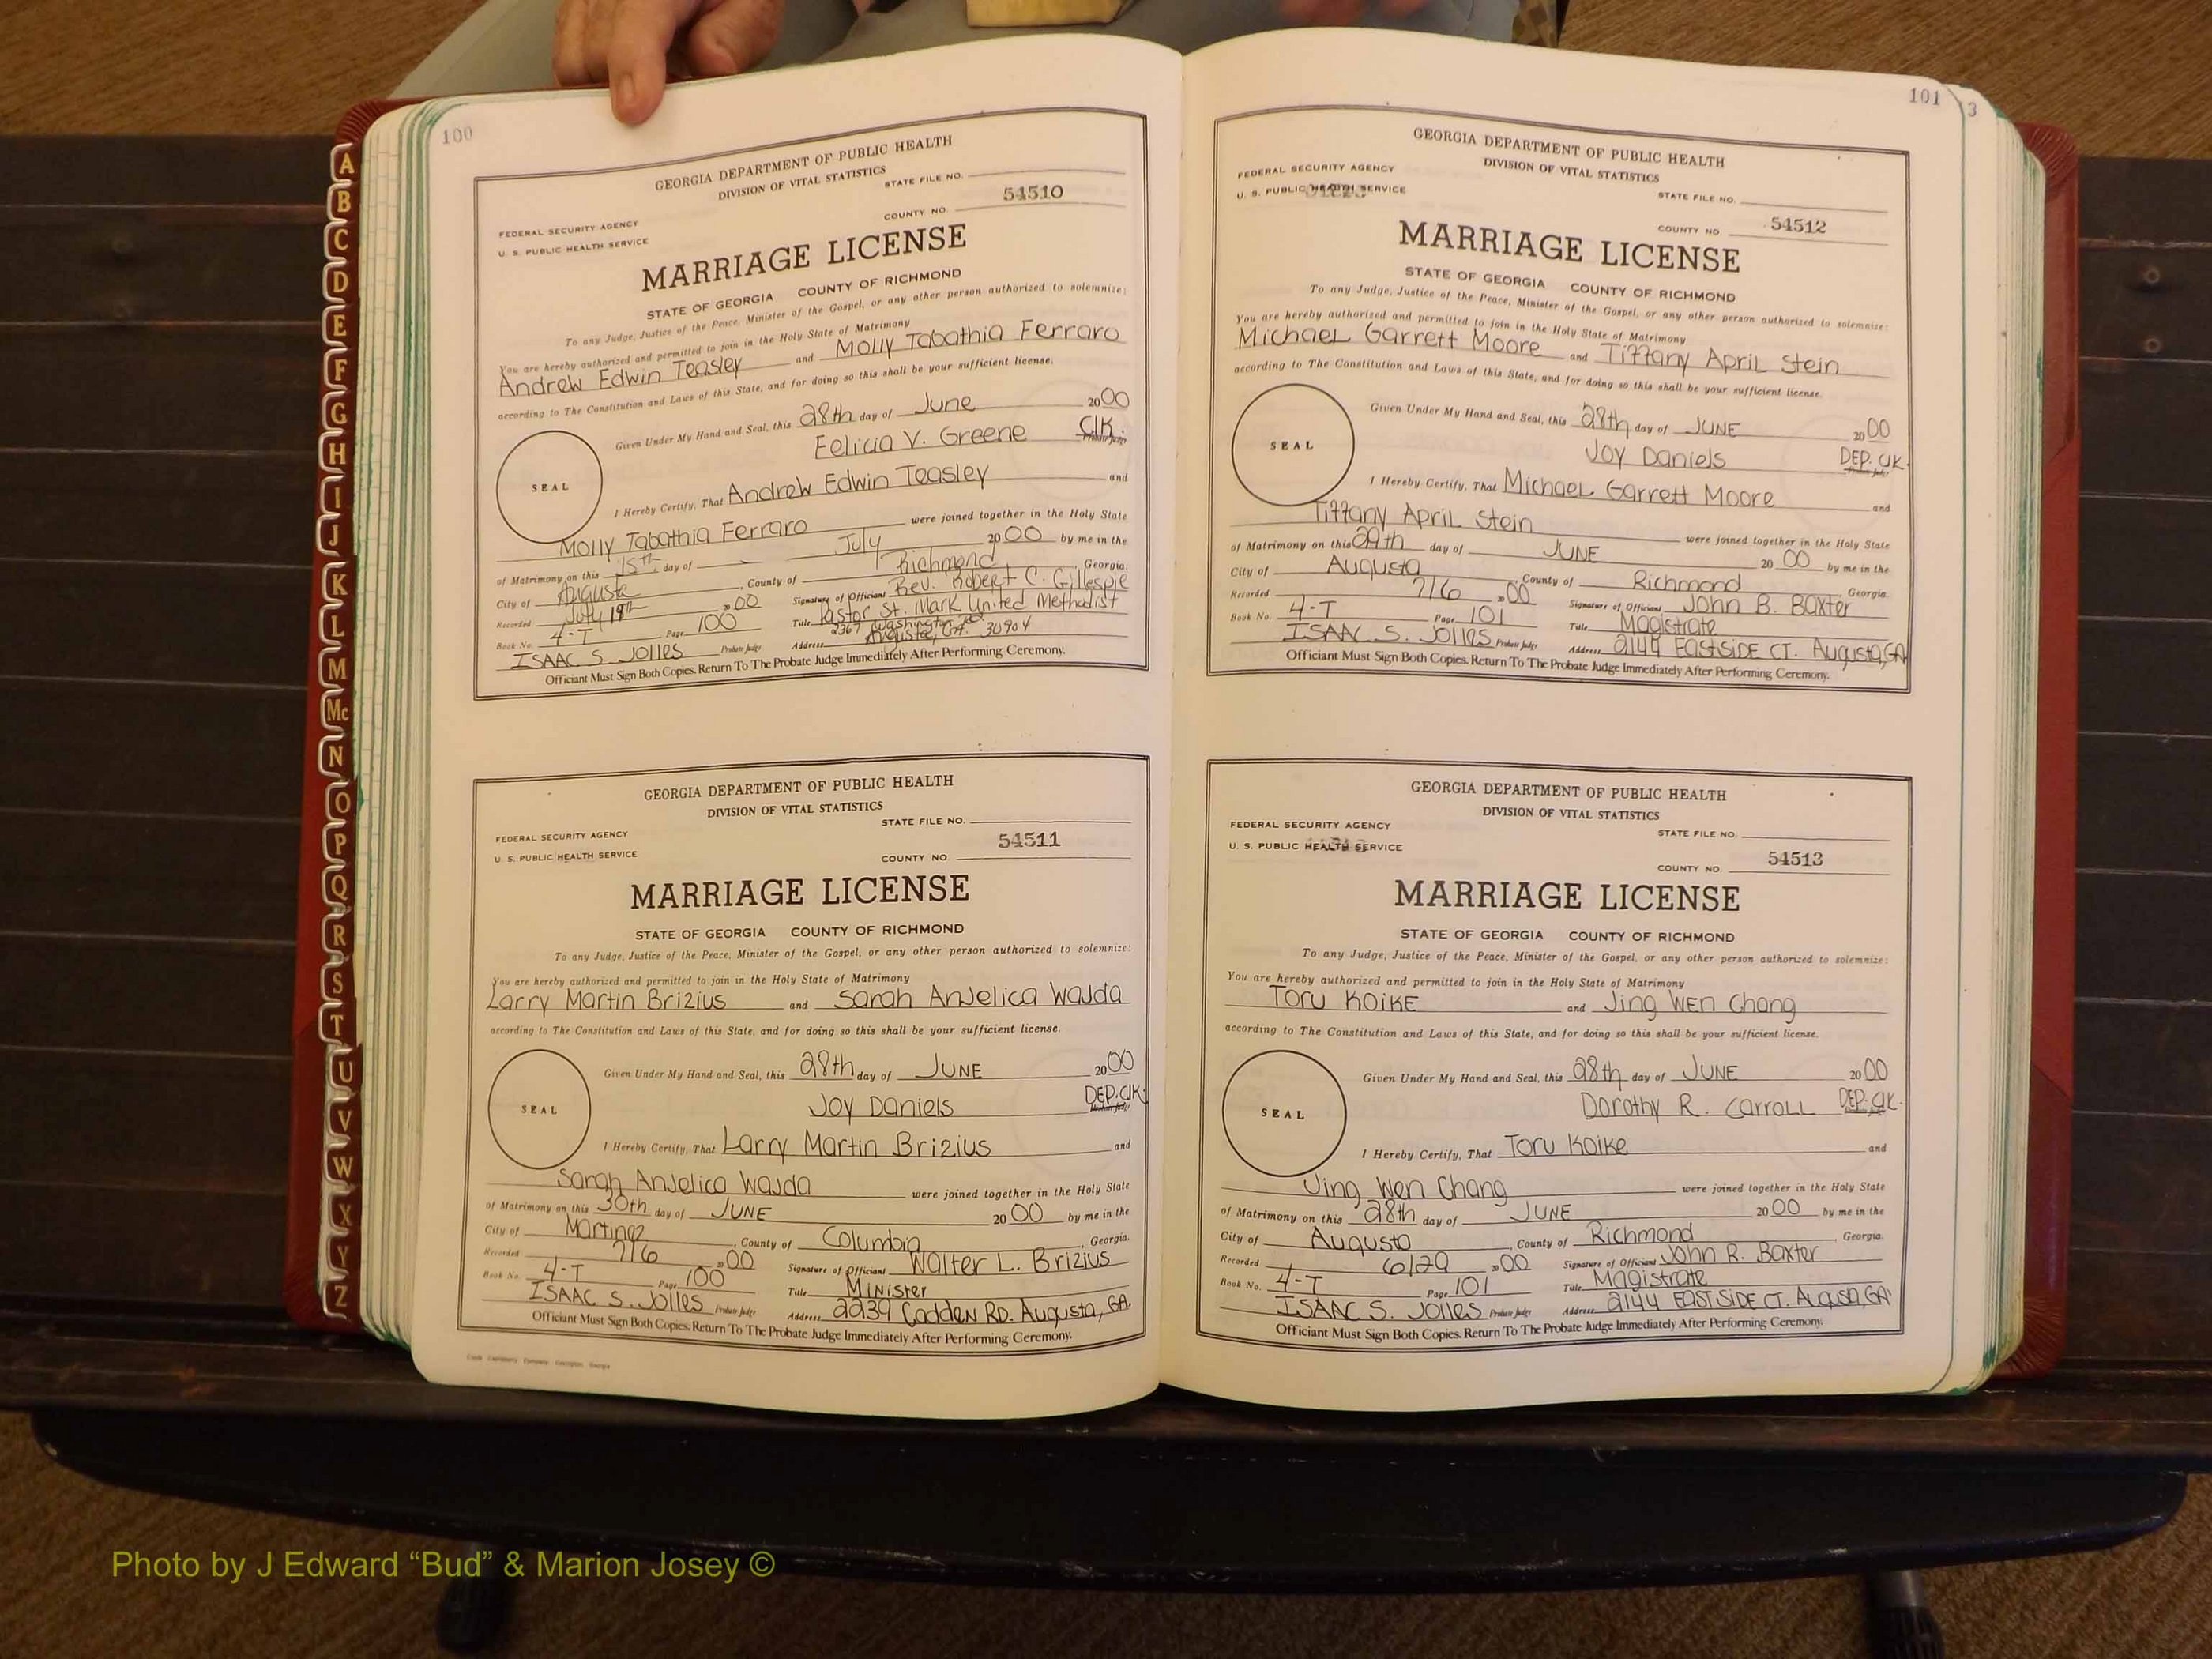 100
GEORGIA DEPARTMENT OF PUBLIC HEALTH
DIVISION OF VITAL STATISTICS
STATE FILE NO.
54510
FEDERAL SECURITY AGENCY
COUNTY NO.
U. S. PUBLIC HEALTH SERVICE
MARRIAGE LICENSE
STATE OF GEORGIA COUNTY OF RICHMOND
To any Judge, Justice of the Peace, Minister of the Gospel, or any other person authorized to solemnize:
You are hereby authorized and permitted to join in the Holy State of Matrimony
Andrew Edwin Teasley and Molly Tabathia Ferraro
according to The Constitution and Laws of this State, and for doing so this shall be your sufficient license.
Given Under My Hand and Seal, this 28th day of June 2000
Felicia V. Greene Clk.
SEAL
I Hereby Certify, That Andrew Edwin Teasley and
Molly Tabathia Ferraro were joined together in the Holy State
of Matrimony on this 15th day of July 2000 by me in the
City of Augusta County of Richmond, Georgia.
Recorded July 19th 00 Signature of Officiant Rev. Robert C. Gillespie
Book No. 4-T Page 100 Title Pastor St. Mark United Methodist
ISAAC S. Jolles Probate Judge Address 2367 Washington Rd. Augusta, GA. 30904
Officiant Must Sign Both Copies. Return To The Probate Judge Immediately After Performing Ceremony.
GEORGIA DEPARTMENT OF PUBLIC HEALTH
DIVISION OF VITAL STATISTICS
STATE FILE NO.
FEDERAL SECURITY AGENCY
54511
U. S. PUBLIC HEALTH SERVICE
COUNTY NO.
MARRIAGE LICENSE
STATE OF GEORGIA COUNTY OF RICHMOND
To any Judge, Justice of the Peace, Minister of the Gospel, or any other person authorized to solemnize:
You are hereby authorized and permitted to join in the Holy State of Matrimony
Larry Martin Brizius and Sarah Anjelica Wajda
according to The Constitution and Laws of this State, and for doing so this shall be your sufficient license.
Given Under My Hand and Seal, this 28th day of JUNE 2000
Joy Daniels DEP. Clk.
SEAL
I Hereby Certify, That Larry Martin Brizius and
Sarah Anjelica Wajda were joined together in the Holy State
of Matrimony on this 30th day of JUNE 2000 by me in the
City of Martinez, County of Columbia, Georgia.
Recorded 7/6 00 Signature of Officiant Walter L. Brizius
Book No. 4-T Page 100 Title Minister
ISAAC S. Jolles Probate Judge Address 2239 Cadden RD. Augusta, GA.
Officiant Must Sign Both Copies. Return To The Probate Judge Immediately After Performing Ceremony.
101
3
GEORGIA DEPARTMENT OF PUBLIC HEALTH
DIVISION OF VITAL STATISTICS
FEDERAL SECURITY AGENCY
U. S. PUBLIC HEALTH SERVICE
STATE FILE NO.
COUNTY NO. 54512
MARRIAGE LICENSE
STATE OF GEORGIA COUNTY OF RICHMOND
To any Judge, Justice of the Peace, Minister of the Gospel, or any other person authorized to solemnize:
You are hereby authorized and permitted to join in the Holy State of Matrimony
Michael Garrett Moore and Tiffany April Stein
according to The Constitution and Laws of this State, and for doing so this shall be your sufficient license.
Given Under My Hand and Seal, this 28th day of JUNE 2000
Joy Daniels DEP. Clk.
SEAL
I Hereby Certify, That Michael Garrett Moore and
Tiffany April Stein were joined together in the Holy State
of Matrimony on this 29th day of JUNE 2000 by me in the
City of Augusta, County of Richmond Georgia.
Recorded 7/6 00 Signature of Officiant John B. Baxter
Book No. 4-T Page 101 Title Magistrate
ISAAC S. Jolles Probate Judge Address 2144 EastSIDE CT. Augusta, GA
Officiant Must Sign Both Copies. Return To The Probate Judge Immediately After Performing Ceremony.
GEORGIA DEPARTMENT OF PUBLIC HEALTH
DIVISION OF VITAL STATISTICS
FEDERAL SECURITY AGENCY
STATE FILE NO.
U. S. PUBLIC HEALTH SERVICE
COUNTY NO. 54513
MARRIAGE LICENSE
STATE OF GEORGIA COUNTY OF RICHMOND
To any Judge, Justice of the Peace, Minister of the Gospel, or any other person authorized to solemnize:
You are hereby authorized and permitted to join in the Holy State of Matrimony
Toru Koike and Jing Wen Chang
according to The Constitution and Laws of this State, and for doing so this shall be your sufficient license.
Given Under My Hand and Seal, this 28th day of JUNE 2000
Dorothy R. Carroll DEP. Clk.
SEAL
I Hereby Certify, That Toru Koike and
Jing Wen Chang were joined together in the Holy State
of Matrimony on this 28th day of JUNE 2000 by me in the
City of Augusta, County of Richmond, Georgia.
Recorded 6/29 00 Signature of Officiant John R. Baxter
Book No. 4-T Page 101 Title Magistrate
ISAAC S. Jolles Probate Judge Address 2144 EAST SIDE CT. Augusta, GA
Officiant Must Sign Both Copies. Return To The Probate Judge Immediately After Performing Ceremony.
A
B
C
D
E
F
G
H
I
J
K
L
M
Mc
N
O
P
Q
R
S
T
U
V
W
X
Y
Z
Photo by J Edward “Bud” & Marion Josey ©